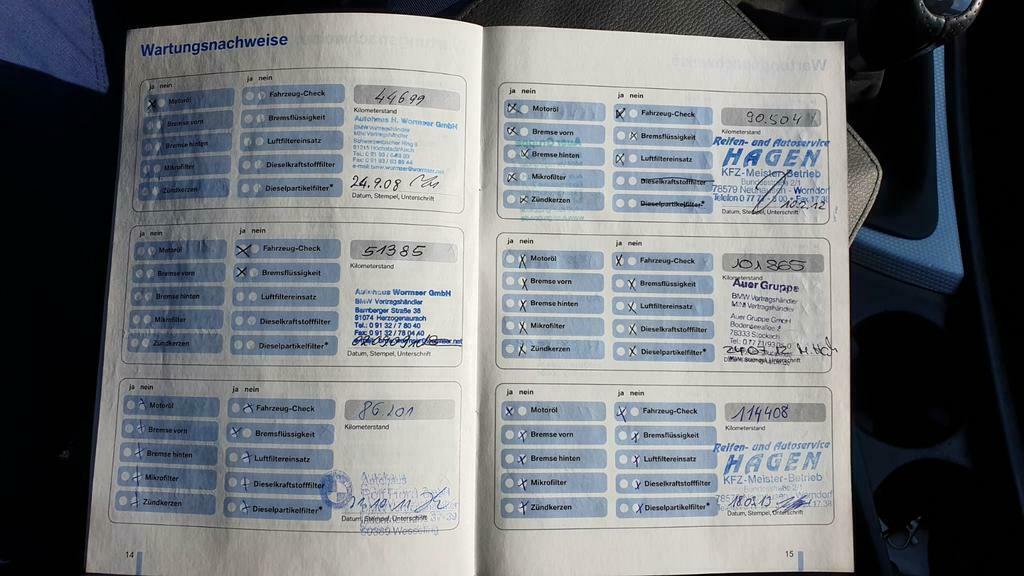 Wartungsnachweise
ja nein ja nein
Motoröl Fahrzeug-Check 44699
Kilometerstand
Bremse vorn Bremsflüssigkeit Autohaus H. Wormser GmbH
BMW Vertragshändler
MINI Vertragshändler
Bremse hinten Luftfiltereinsatz
Mikrofilter Dieselkraftstofffilter
Zündkerzen Dieselpartikelfilter* 24.9.08
Datum, Stempel, Unterschrift
ja nein ja nein
Motoröl Fahrzeug-Check 51385
Kilometerstand
Bremse vorn Bremsflüssigkeit
Bremse hinten Luftfiltereinsatz Autohaus Wormser GmbH
BMW Vertragshändler
Bamberger Straße 38
91074 Herzogenaurach
Mikrofilter Dieselkraftstofffilter Tel.: 0 91 32 / 7 80 40
Fax: 0 91 32 / 78 04 40
Zündkerzen Dieselpartikelfilter*
Datum, Stempel, Unterschrift
ja nein ja nein
Motoröl Fahrzeug-Check 86.201
Kilometerstand
Bremse vorn Bremsflüssigkeit
Bremse hinten Luftfiltereinsatz
Mikrofilter Dieselkraftstofffilter Autohaus
Zündkerzen Dieselpartikelfilter* 21.10.11
Datum, Stempel, Unterschrift
50389 Wesseling
14
ja nein ja nein
Motoröl Fahrzeug-Check 90.504
Kilometerstand
Bremse vorn Bremsflüssigkeit Reifen- und Autoservice
Bremse hinten Luftfiltereinsatz HAGEN
KFZ-Meister-Betrieb
Mikrofilter Dieselkraftstofffilter Bundesstraße 2/1
78579 Neuhausen - Worndorf
Zündkerzen Dieselpartikelfilter*
Datum, Stempel, Unterschrift
ja nein ja nein
Motoröl Fahrzeug-Check 101865
Kilometerstand
Bremse vorn Bremsflüssigkeit Auer Gruppe
BMW Vertragshändler
MINI Vertragshändler
Bremse hinten Luftfiltereinsatz
Auer Gruppe GmbH
Mikrofilter Dieselkraftstofffilter
78333 Stockach
Zündkerzen Dieselpartikelfilter* 24.07.12
Datum, Stempel, Unterschrift
ja nein ja nein
Motoröl Fahrzeug-Check 114408
Kilometerstand
Bremse vorn Bremsflüssigkeit Reifen- und Autoservice
Bremse hinten Luftfiltereinsatz HAGEN
KFZ-Meister-Betrieb
Mikrofilter Dieselkraftstofffilter
Zündkerzen Dieselpartikelfilter*
Datum, Stempel, Unterschrift
15